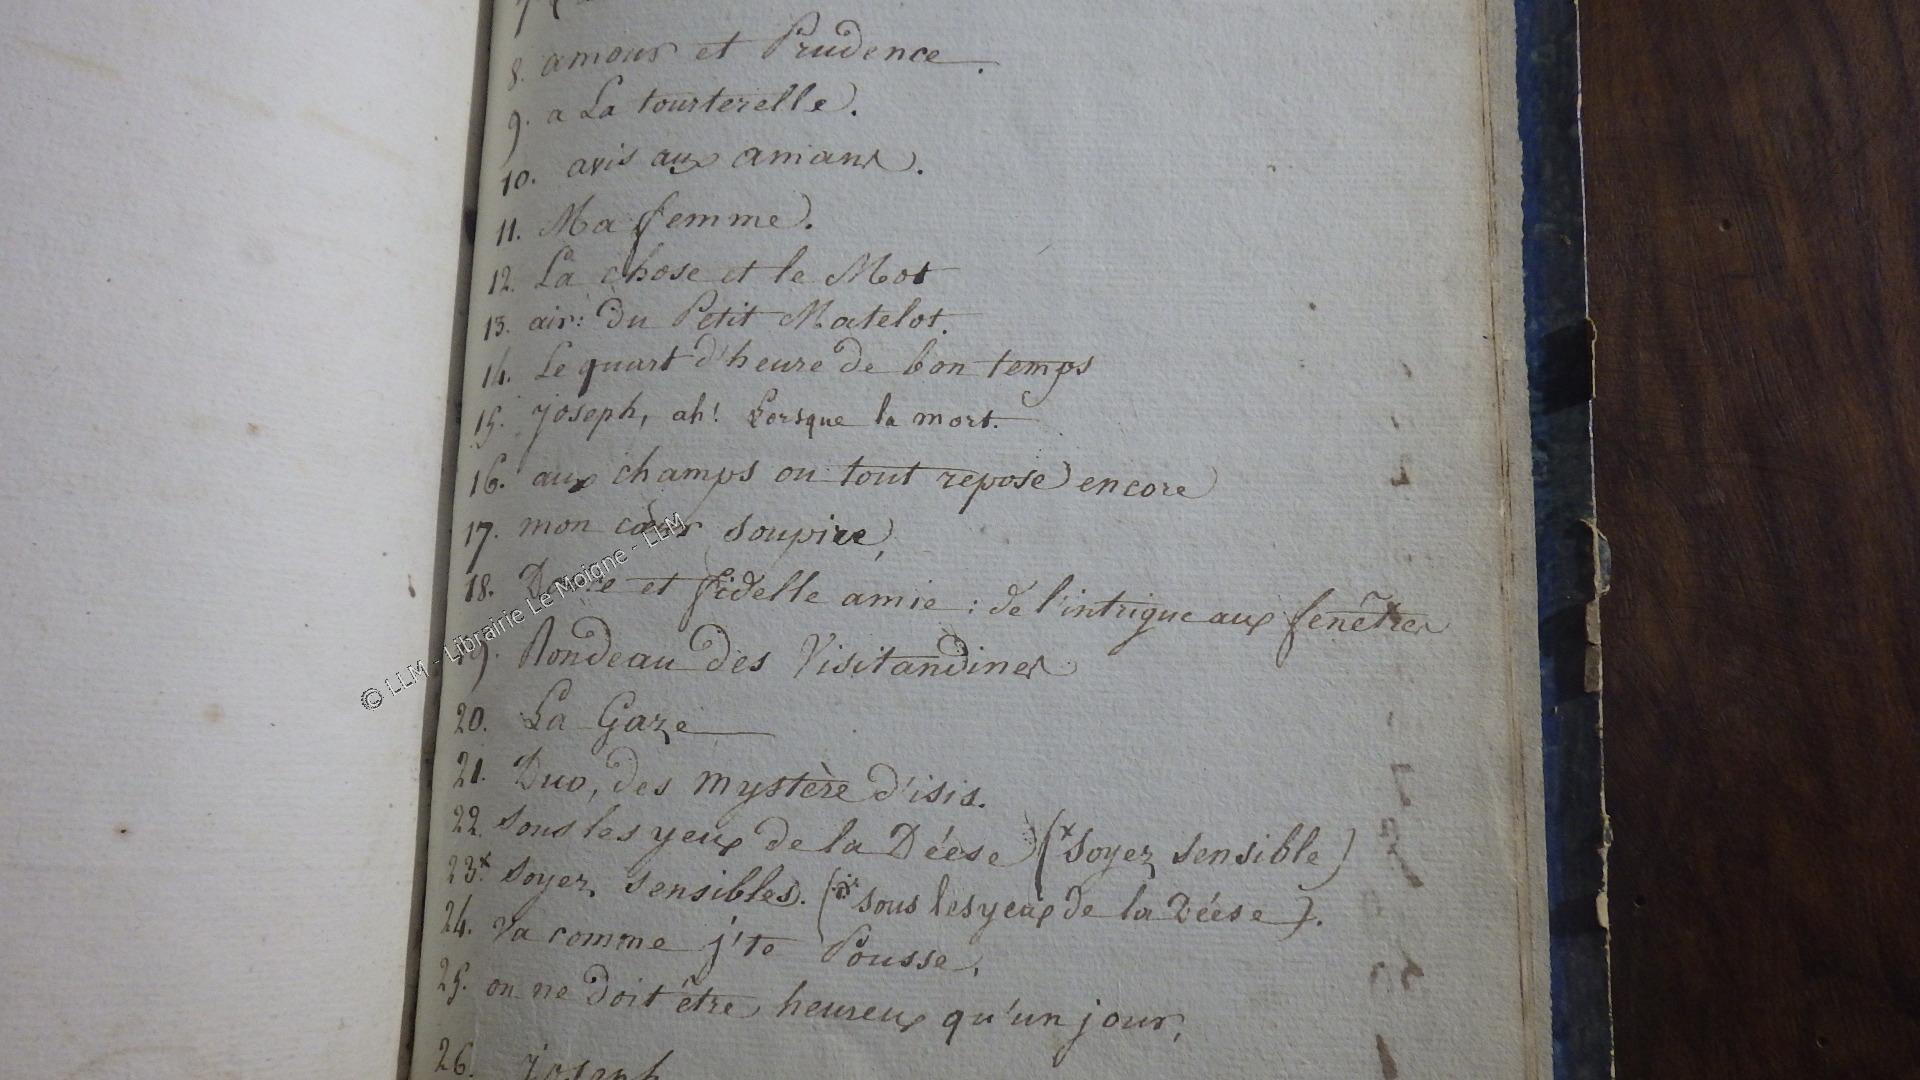 8. amour et Prudence.
9. a La tourterelle.
10. avis aux amans.
11. Ma femme.
12. La chose et le Mot
13. air: du Petit Matelot.
14. Le quart d'heure de bon temps
15. Joseph, ah! Lorsque la mort.
16. aux champs ou tout repose encore
17. mon cœur soupire,
18. Douce et fidelle amie : de l'intrigue aux fenêtres
19. Rondeau des Visitandines
20. La Gaze
21. Duo, des mystère d'isis.
22. sous les yeux de la Déese (x soyez sensible)
23.x soyez sensibles. (sous les yeux de la Déese).
24. va comme j'te Pousse,
25. on ne doit être heureux qu'un jour,
26. Joseph
© LLM - Librairie Le Moigne - LLM